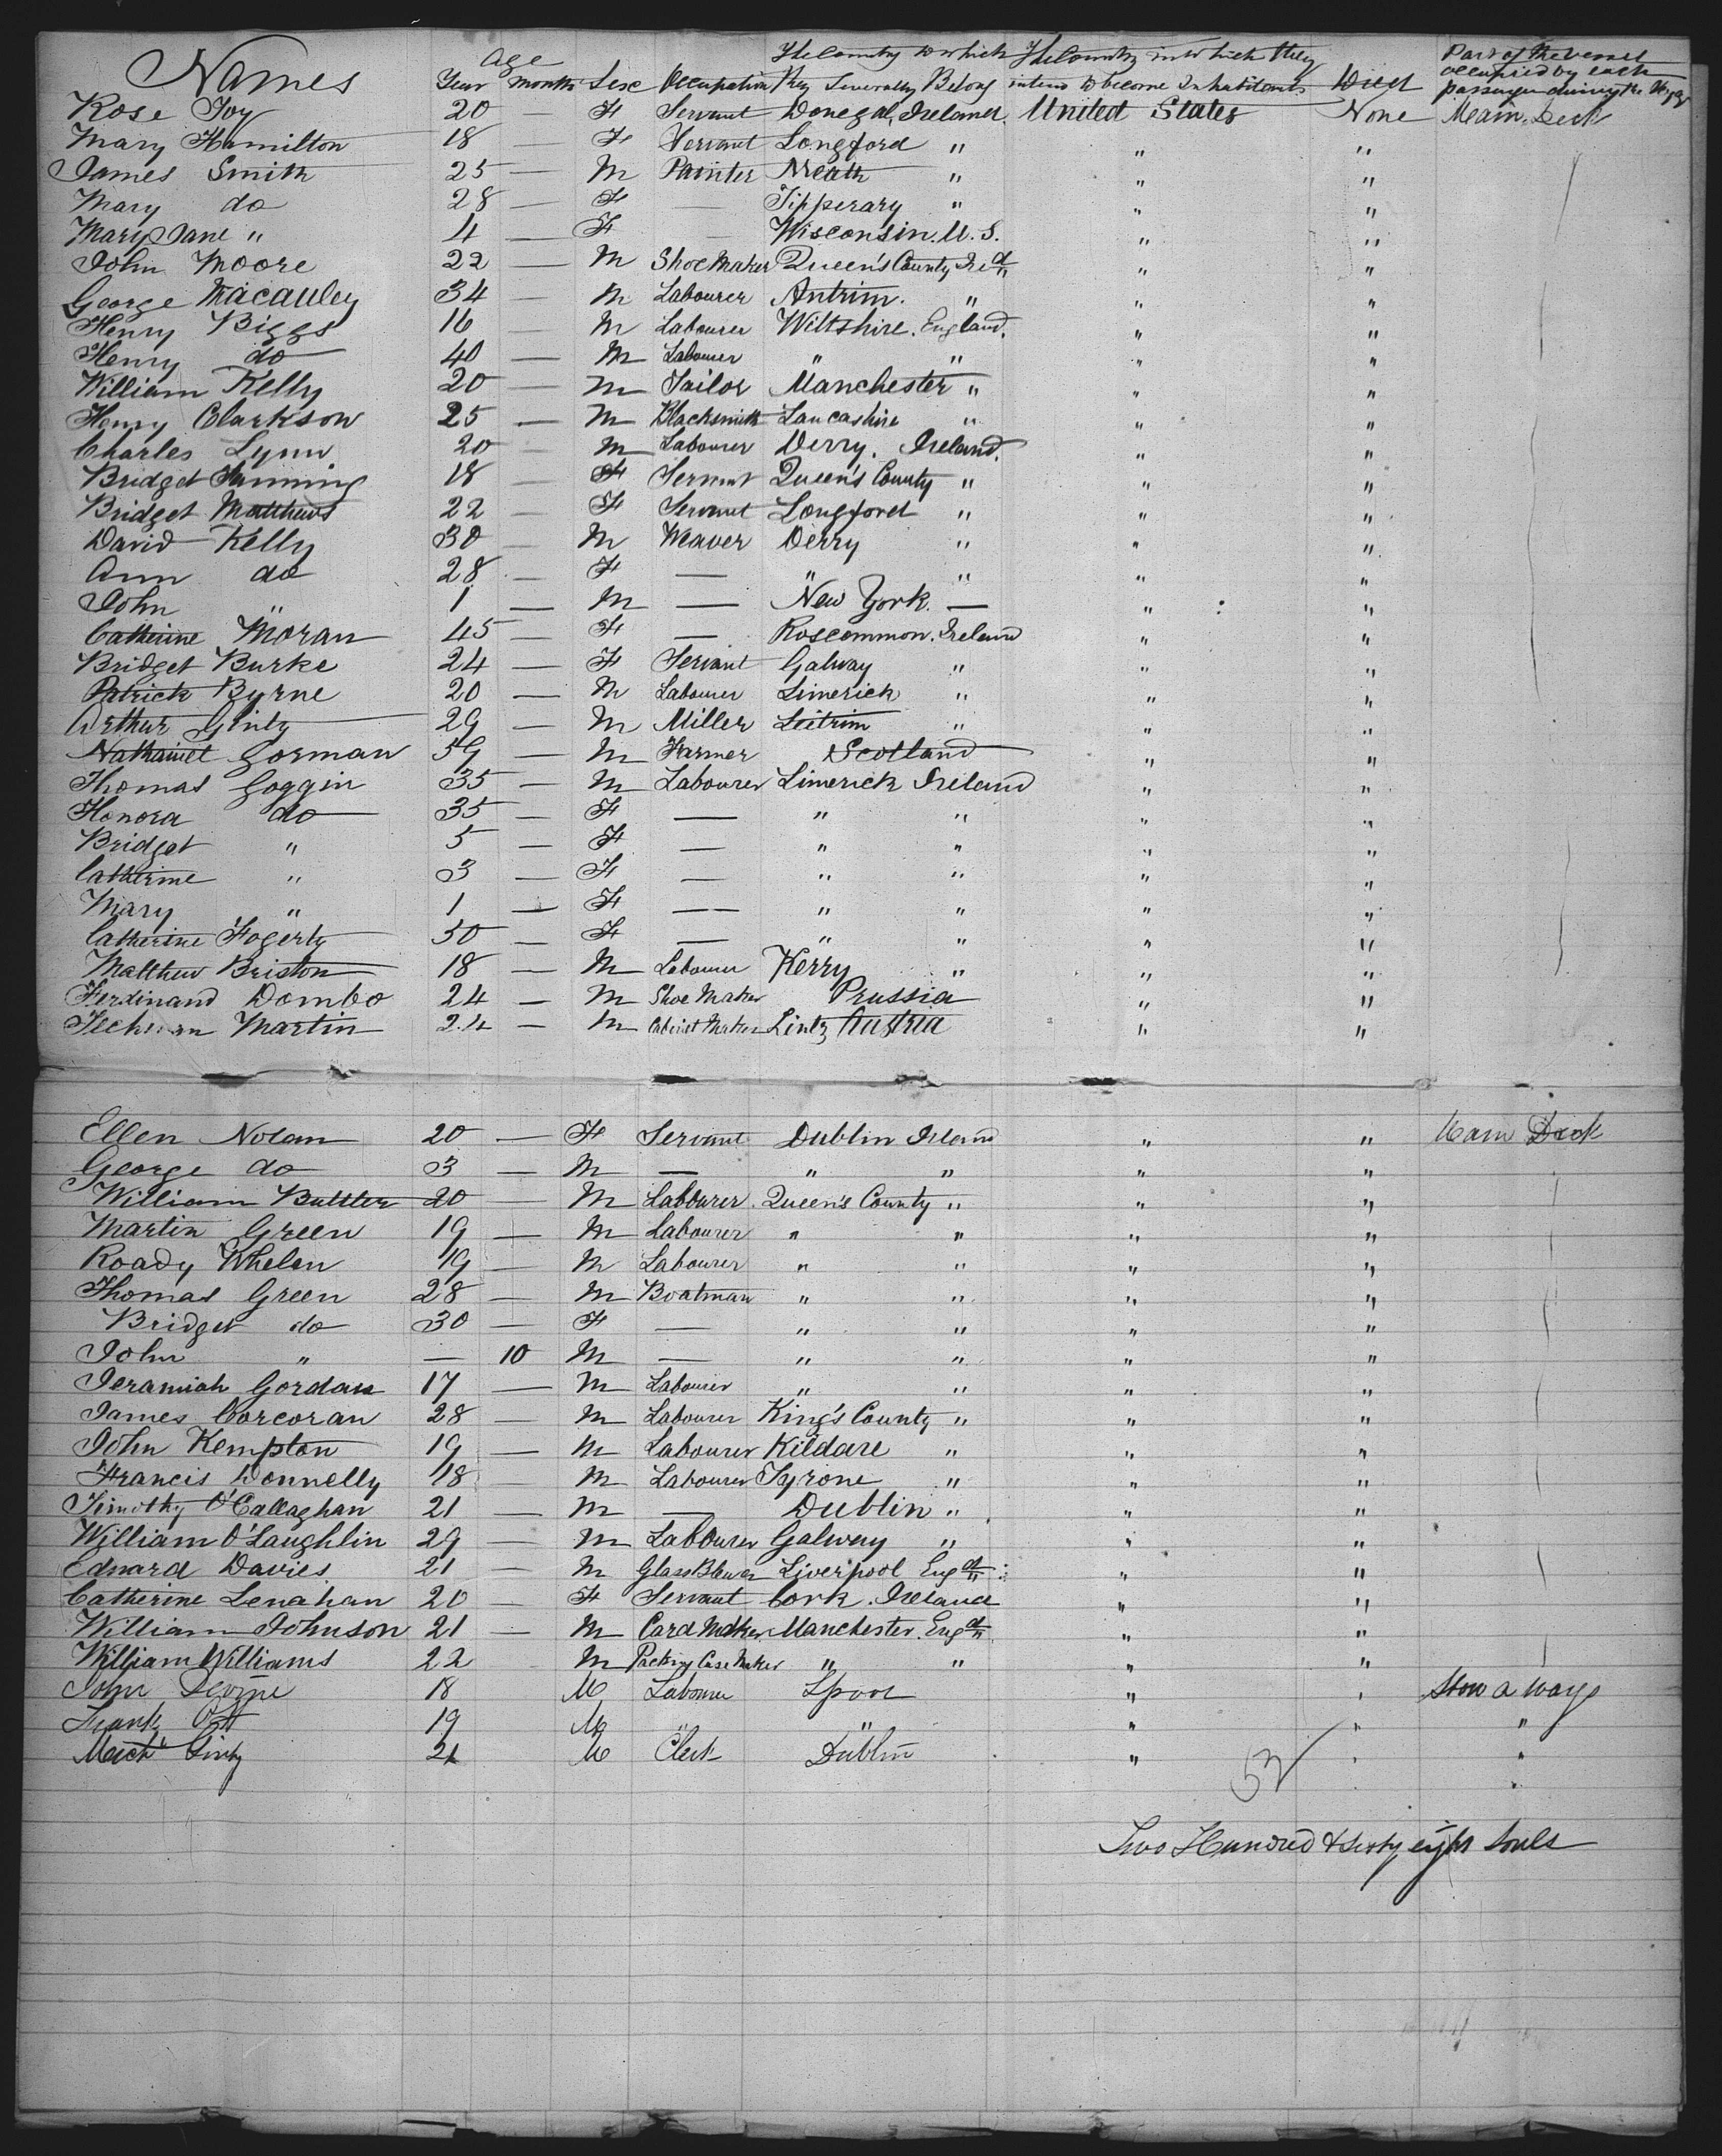 Names Age Year Months Sex Occupation The Country to which they Severally Belong The Country in which they intend to become Inhabitants Died Part of the vessel occupied by each passenger during the Voyage
Rose Foy 20 — F Servant Donegal, Ireland. United States None Main Deck
Mary Hamilton 18 — F Servant Longford " " "
James Smith 25 — M Painter Meath " " "
Mary do 28 — F — Tipperary " " "
Mary Jane " 4 — F — Wisconsin. U. S. " "
John Moore 22 — M Shoe Maker Queen's County Ired " "
George Macauley 34 — M Labourer Antrim. " " "
Henry Biggs 16 — M Labourer Wiltshire. England. " "
Henry do 40 — M Labourer " " " "
William Kelly 20 — M Tailor Manchester " " "
Henry Clarkson 25 — M Blacksmith Lancashire " " "
Charles Lynn 20 — M Labourer Derry. Ireland. " "
Bridget 18 — F Servant Queen's County " " "
Bridget Matthews 22 — F Servant Longford " " "
David Kelly 30 — M Weaver Derry " " "
Ann do 28 — F — " " " "
John " 1 — M — New York. — " "
Catherine Moran 45 — F — Roscommon. Ireland " "
Bridget Burke 24 — F Servant Galway " " "
Patrick Byrne 20 — M Labourer Limerick " " "
Arthur Ginty 29 — M Miller Leitrim " " "
Nathaniel Gorman 59 — M Farmer Scotland " "
Thomas Goggin 35 — M Labourer Limerick Ireland " "
Honora do 35 — F — " " " "
Bridget " 5 — F — " " " "
Catherine " 3 — F — " " " "
Mary " 1 — F — " " " "
Catherine Fogerty 50 — F — " " " "
Matthew Briston 18 — M Labourer Kerry " " "
Ferdinand Dombo 24 — M Shoe Maker Prussia " "
Martin 24 — M Cabinet Maker Lintz Austria " "
Ellen Nolan 20 — F Servant Dublin Ireland " " Main Deck
George do 3 — M — " " " "
William Buttler 20 — M Labourer Queen's County " " "
Martin Green 19 — M Labourer " " " "
Roady Whelan 19 — M Labourer " " " "
Thomas Green 28 — M Boatman " " " "
Bridget do 30 — F — " " " "
John " — 10 M — " " " "
Jeramiah Gordan 17 — M Labourer " " " "
James Corcoran 28 — M Labourer King's County " " "
John Kempton 19 — M Labourer Kildare " " "
Francis Donnelly 18 — M Labourer Tyrone " " "
Timothy O'Callaghan 21 — M — Dublin " " "
William O'Laughlin 29 — M Labourer Galway " " "
Edward Davies 21 — M Glass Blower Liverpool Engd " "
Catherine Lenahan 20 — F Servant Cork. Ireland " "
William Johnson 21 — M Card Maker Manchester. Engd " "
William Williams 22 M Packing Case Maker " " " "
John Devine 18 M Labourer Lpool " " Stow a way
Frank Ott 19 M " " " " "
Mich Ginty 21 M Clerk Dublin " " "
52
Two Hundred & Sixty eight Souls